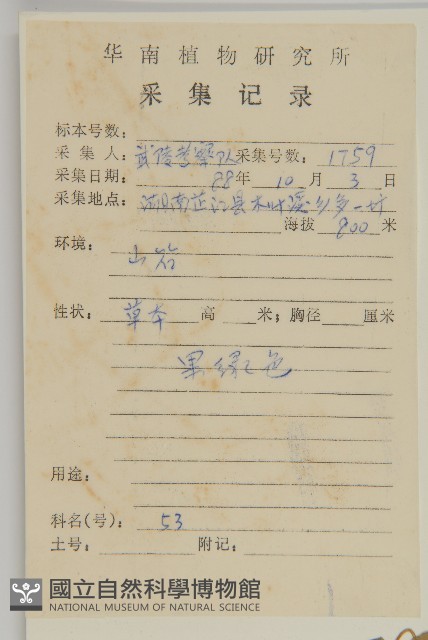 华南植物研究所
采集记录
标本号数：
采集人：武陵考察队 采集号数：1759
采集日期：88年10月3日
采集地点：湖南芷江县木叶溪乡
海拔 900 米
环境：山谷
性状：草本 高 米；胸径 厘米
果绿色
用途：
科名(号)：53
土号： 附记：
國立自然科學博物館
NATIONAL MUSEUM OF NATURAL SCIENCE